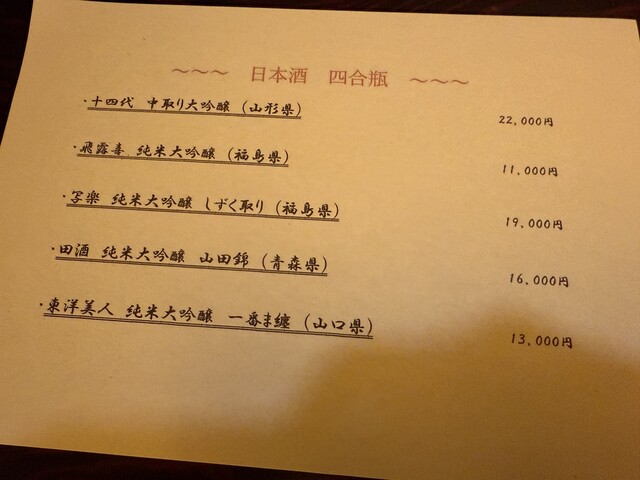 ~~~ 日本酒 四合瓶 ~~~
・十四代 中取り大吟醸 (山形県) 22,000円
・飛露喜 純米大吟醸 (福島県) 11,000円
・写楽 純米大吟醸 しずく取り (福島県) 19,000円
・田酒 純米大吟醸 山田錦 (青森県) 16,000円
・東洋美人 純米大吟醸 一番ま纏 (山口県) 13,000円